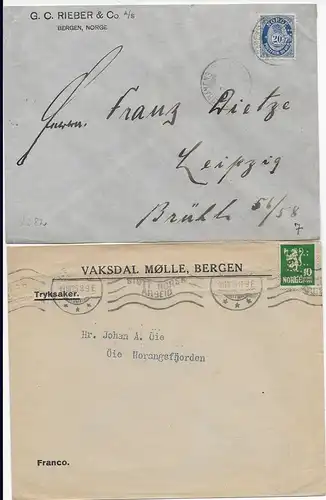 G. C. RIEBER & Co. A/S
BERGEN, NORGE
NORGE
20
Herrn Franz Dietze
Leipzig
Brühl 56/58
7
VAKSDAL MØLLE, BERGEN
Tryksaker.
NORSK
ARBEID
10
NORGE
Hr. Johan A. Öie
Öie Norangsfjorden
Franco.